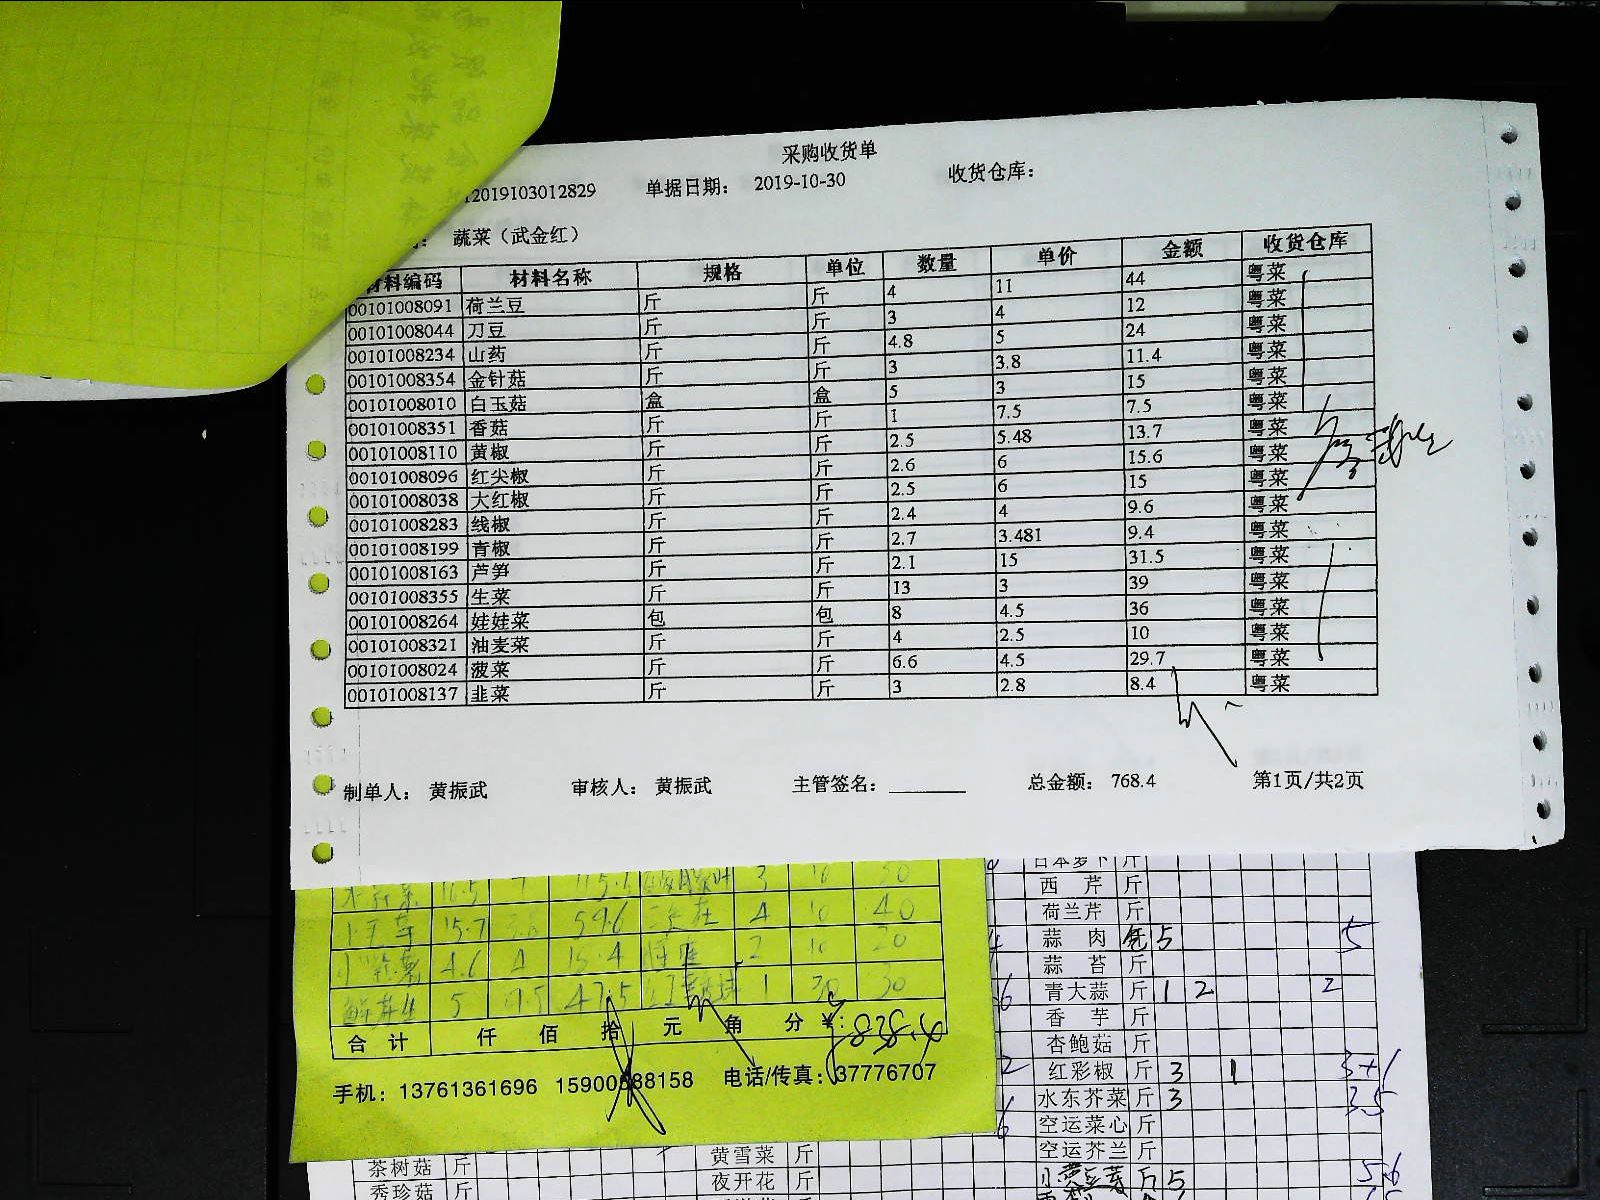 采购收货单
12019103012829 单据日期： 2019-10-30 收货仓库：
蔬菜（武金红）
材料编码 材料名称 规格 单位 数量 单价 金额 收货仓库
00101008091 荷兰豆 斤 斤 4 11 44 粤菜
00101008044 刀豆 斤 斤 3 4 12 粤菜
00101008234 山药 斤 斤 4.8 5 24 粤菜
00101008354 金针菇 斤 斤 3 3.8 11.4 粤菜
00101008010 白玉菇 盒 盒 5 3 15 粤菜
00101008351 香菇 斤 斤 1 7.5 7.5 粤菜
00101008110 黄椒 斤 斤 2.5 5.48 13.7 粤菜
00101008096 红尖椒 斤 斤 2.6 6 15.6 粤菜
00101008038 大红椒 斤 斤 2.5 6 15 粤菜
00101008283 线椒 斤 斤 2.4 4 9.6 粤菜
00101008199 青椒 斤 斤 2.7 3.481 9.4 粤菜
00101008163 芦笋 斤 斤 2.1 15 31.5 粤菜
00101008355 生菜 斤 斤 13 3 39 粤菜
00101008264 娃娃菜 包 包 8 4.5 36 粤菜
00101008321 油麦菜 斤 斤 4 2.5 10 粤菜
00101008024 菠菜 斤 斤 6.6 4.5 29.7 粤菜
00101008137 韭菜 斤 斤 3 2.8 8.4 粤菜
制单人： 黄振武 审核人： 黄振武 主管签名： 总金额： 768.4 第1页/共2页
日本萝卜 斤
3 10 30 西芹 斤
15.7 59.6 4 10 40 荷兰芹 斤
4.6 4 2 10 20 蒜肉 5 5
5 9.5 47.5 1 30 30 蒜苔 斤
青大蒜 斤 1 2 2
合计 仟 佰 拾 元 角 分 ¥： 828.4 香芋 斤
杏鲍菇 斤
手机：13761361696 15900688158 电话/传真：37776707 红彩椒 斤 3 1 3+1
水东芥菜 斤 3 3.5
空运菜心 斤
茶树菇 斤 黄雪菜 斤 空运芥兰 斤
秀珍菇 斤 夜开花 斤 斤 5 5.6